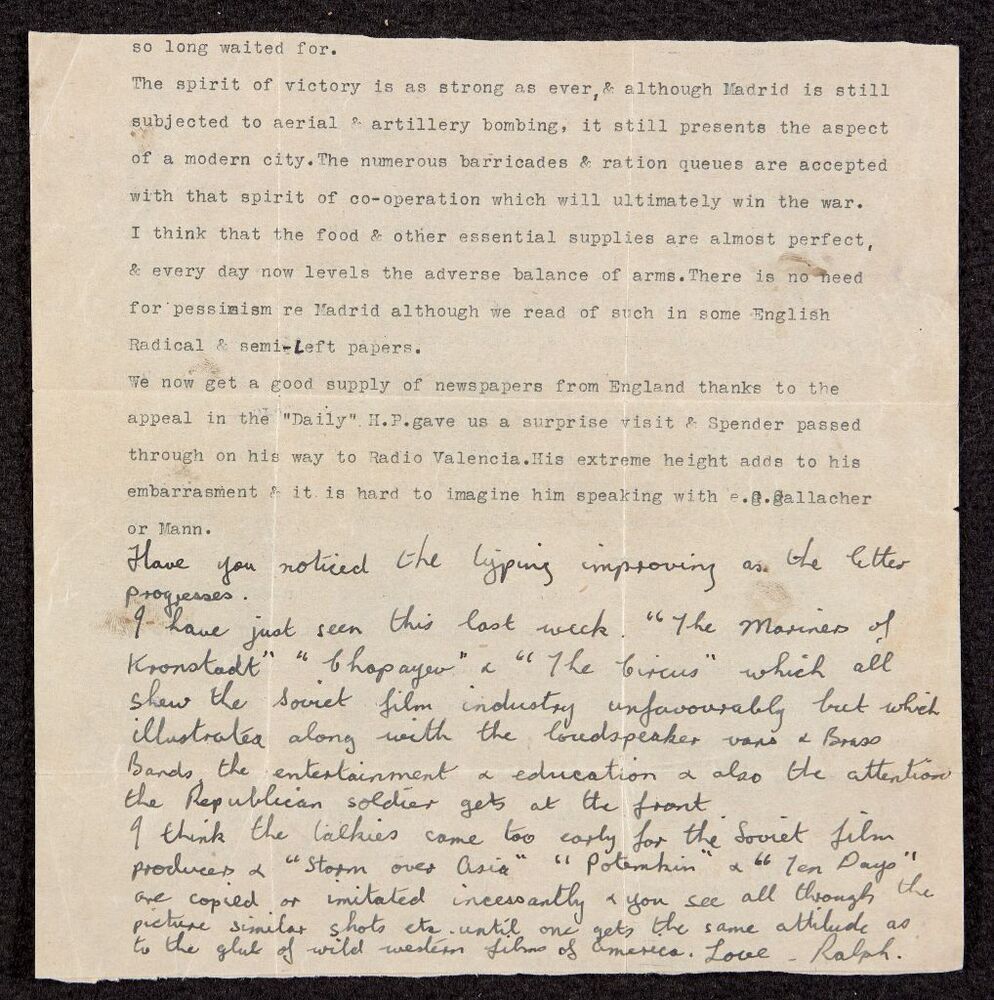 so long waited for.
The spirit of victory is as strong as ever,& although Madrid is still
subjected to aerial & artillery bombing, it still presents the aspect
of a modern city.The numerous barricades & ration queues are accepted
with that spirit of co-operation which will ultimately win the war.
I think that the food & other essential supplies are almost perfect,
& every day now levels the adverse balance of arms.There is no need
for pessimism re Madrid although we read of such in some English
Radical & semi-Left papers.
We now get a good supply of newspapers from England thanks to the
appeal in the "Daily". H.P.gave us a surprise visit & Spender passed
through on his way to Radio Valencia.His extreme height adds to his
embarrasment & it is hard to imagine him speaking with e.g.Gallacher
or Mann.
Have you noticed the typing improving as the letter
progresses.
I have just seen this last week. "The Mariners of
Kronstadt" "Chapayev" & "The Circus" which all
shew the Soviet film industry unfavourably but which
illustrates along with the loudspeaker vans & Brass
Bands, the entertainment & education & also the attention
the Republican soldier gets at the front
I think the talkies came too early for the Soviet film
producers & "Storm over Asia" "Potemkin" & "Ten Days"
are copied or imitated incessantly & you see all through the
picture similar shots etc. until one gets the same attitude as
to the glut of wild western films of America. Love - Ralph.